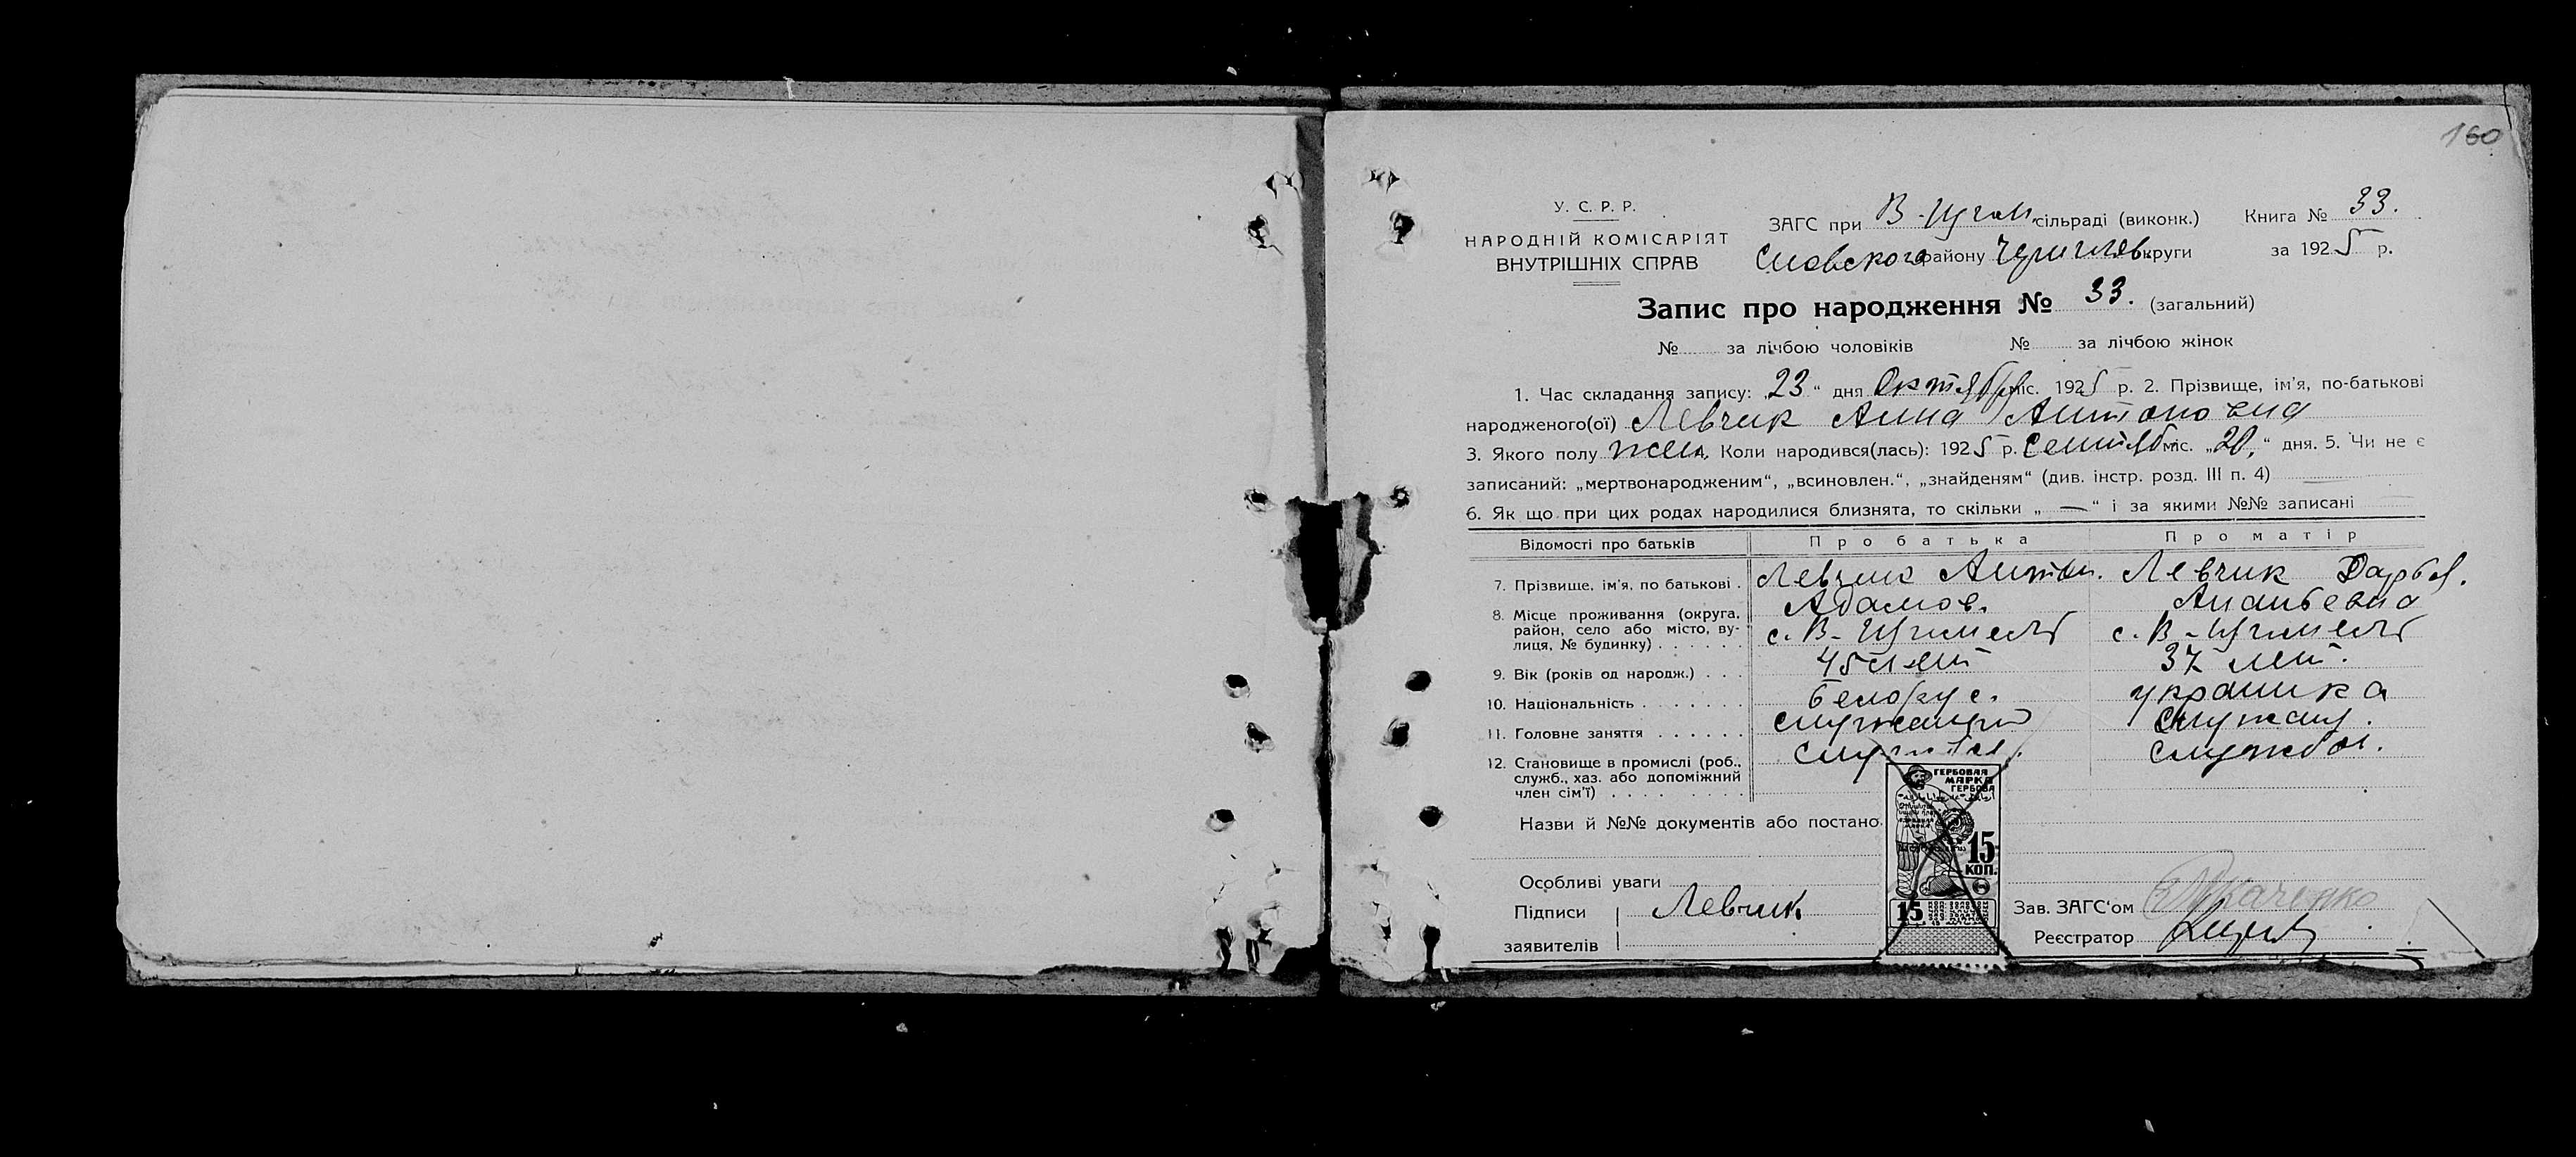 160
У. С. Р. Р.
НАРОДНІЙ КОМІСАРІЯТ
ВНУТРІШНІХ СПРАВ
ЗАГС при сільраді (виконк.) Книга № 33.
Сновского району округи за 1925 р.
Запис про народження № 33. (загальний)
№ за лічбою чоловіків № за лічбою жінок
1. Час складання запису: „23“ дня Октября міс. 1925 р. 2. Прізвище, ім’я, по-батькові
народженого(ої) Левчик Анна Антоновна
3. Якого полу жен. Коли народився(лась): 1925 р. Сентяб міс. „20,“ дня. 5. Чи не є
записаний: „мертвонародженим“, „всиновлен.“, „знайденям“ (див. інстр. розд. III п. 4)
6. Як що при цих родах народилися близнята, то скільки „ — “ і за якими №№ записані
Відомості про батьків Про батька Про матір
7. Прізвище, ім’я, по батькові . Левчик Антон. Левчик Дарья.
Адамов. Ананьевна
8. Місце проживання (округа, район, село або місто, вулиця, № будинку) с. В- с. В-
9. Вік (років од народж.) . . . 45 лет 37 лет.
10. Національність . . . . . . . белорус. украинка
11. Головне заняття . . . . . . служащий служащ.
12. Становище в промислі (роб., служб., хаз. або допоміжний член сім’ї) . . . . . . . . . служба.
Назви й №№ документів або постано
ГЕРБОВАЯ
МАРКА
ГЕРБОВА
15
КОП.
15
Особливі уваги
Підписи Левчик
заявителів
Зав. ЗАГС‘ом Ткаченко
Реєстратор